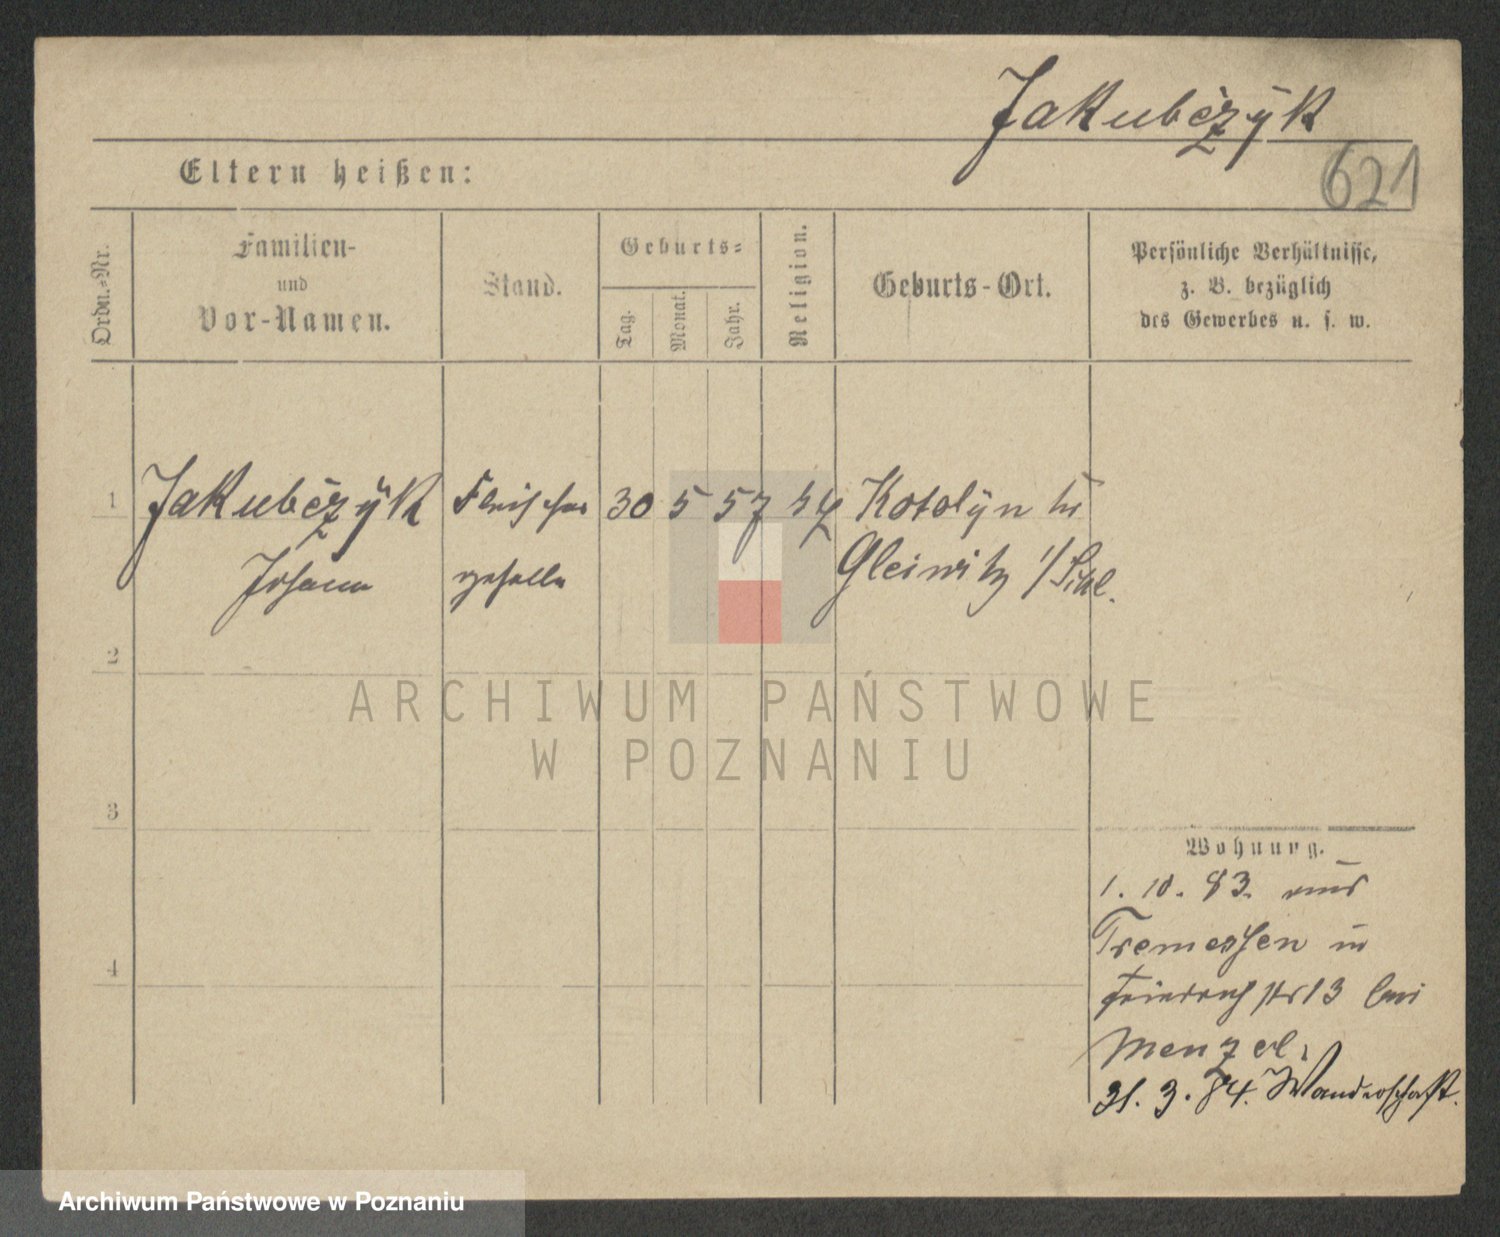 Jakubčzÿk
621
Eltern heißen:
Ordn.=Nr.
Familien-
und
Vor-Namen.
Stand.
Geburts=
Tag.
Monat.
Jahr.
Religion.
Geburts-Ort.
Persönliche Verhältnisse,
z. B. bezüglich
des Gewerbes u. s. w.
1 Jakubčzÿk Fleischer 30 5 57
Johann geselle Gleiwitz i/Schl.
2
ARCHIWUM PAŃSTWOWE
W POZNANIU
3
Wohnung.
1. 10. 83. aus
Tremessen in
4
Friedrichstr 13 bei
Menzel.
31. 3. 84. Wanderschaft.
Archiwum Państwowe w Poznaniu